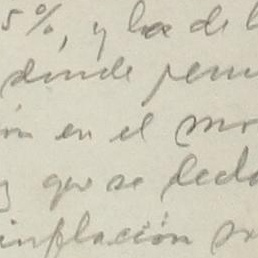 5%, y los de l
donde perm
ón en el mo
y que se decla
inflación su